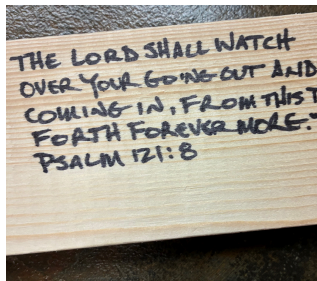 THE LORD SHALL WATCH
OVER YOUR GOING OUT AND
COMING IN, FROM THIS
FORTH FOREVER MORE.
PSALM 121:8